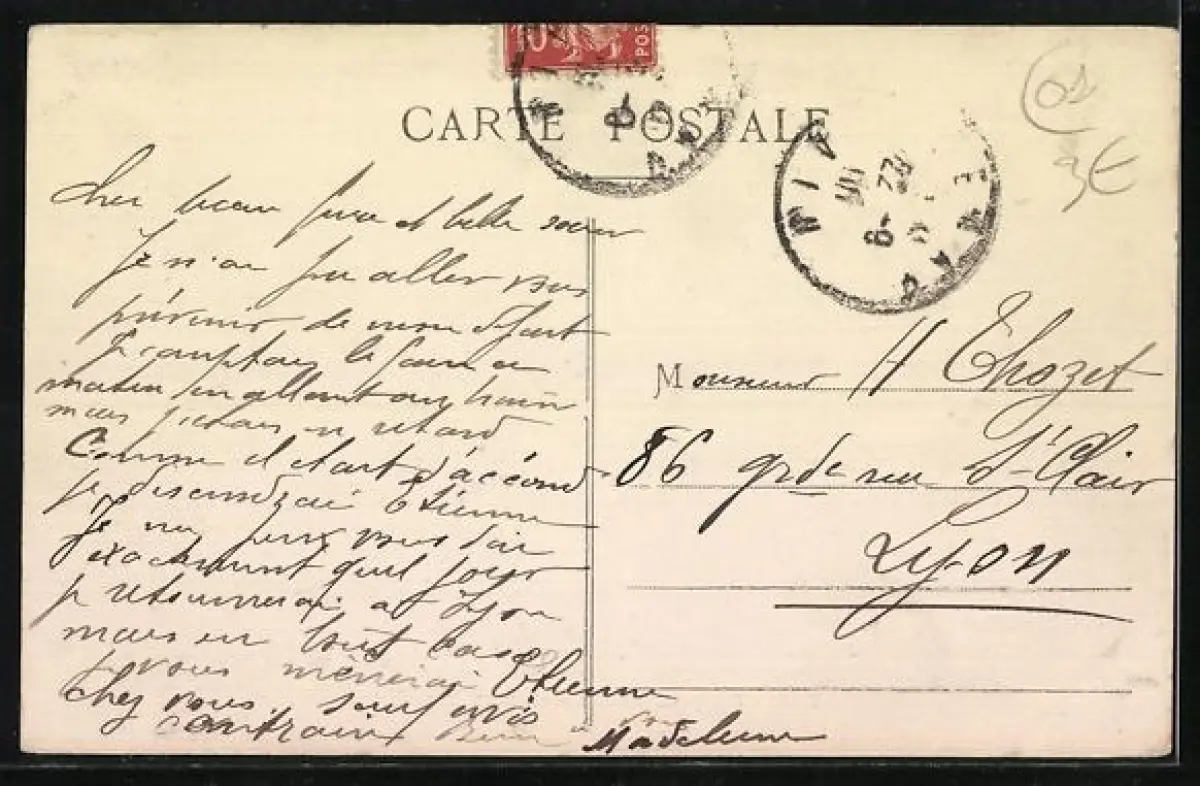 10
POS
CARTE POSTALE
3€
Cher beau frere et belle soeur
Je n'ai pu aller vous
prévenir de mon départ
Je comptais le faire ce
matin en allant au train
mais j'etais en retard
Comme il etait d'accord
je descendrai Etienne
Je ne peux vous dire
exactement quel jour
je retournerai a Lyon
mais en tout cas
je vous mènerai Etienne
chez vous, sauf avis
contraire
Madeleine
Monsieur H Chozet
86 grde rue St Clair
Lyon